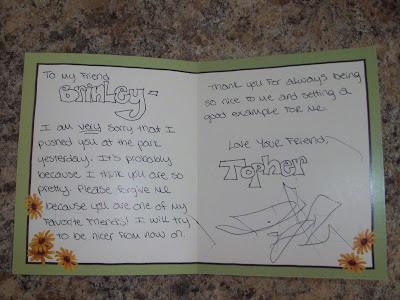 To my Friend
Brinley-
I am very sorry that I
pushed you at the park
yesterday. It's probably
because I think you are so
pretty. Please forgive me
because you are one of my
favorite friends! I will try
to be nicer from now on.
Thank you for always being
so nice to me and setting a
good example for me.
Love Your Friend,
Topher